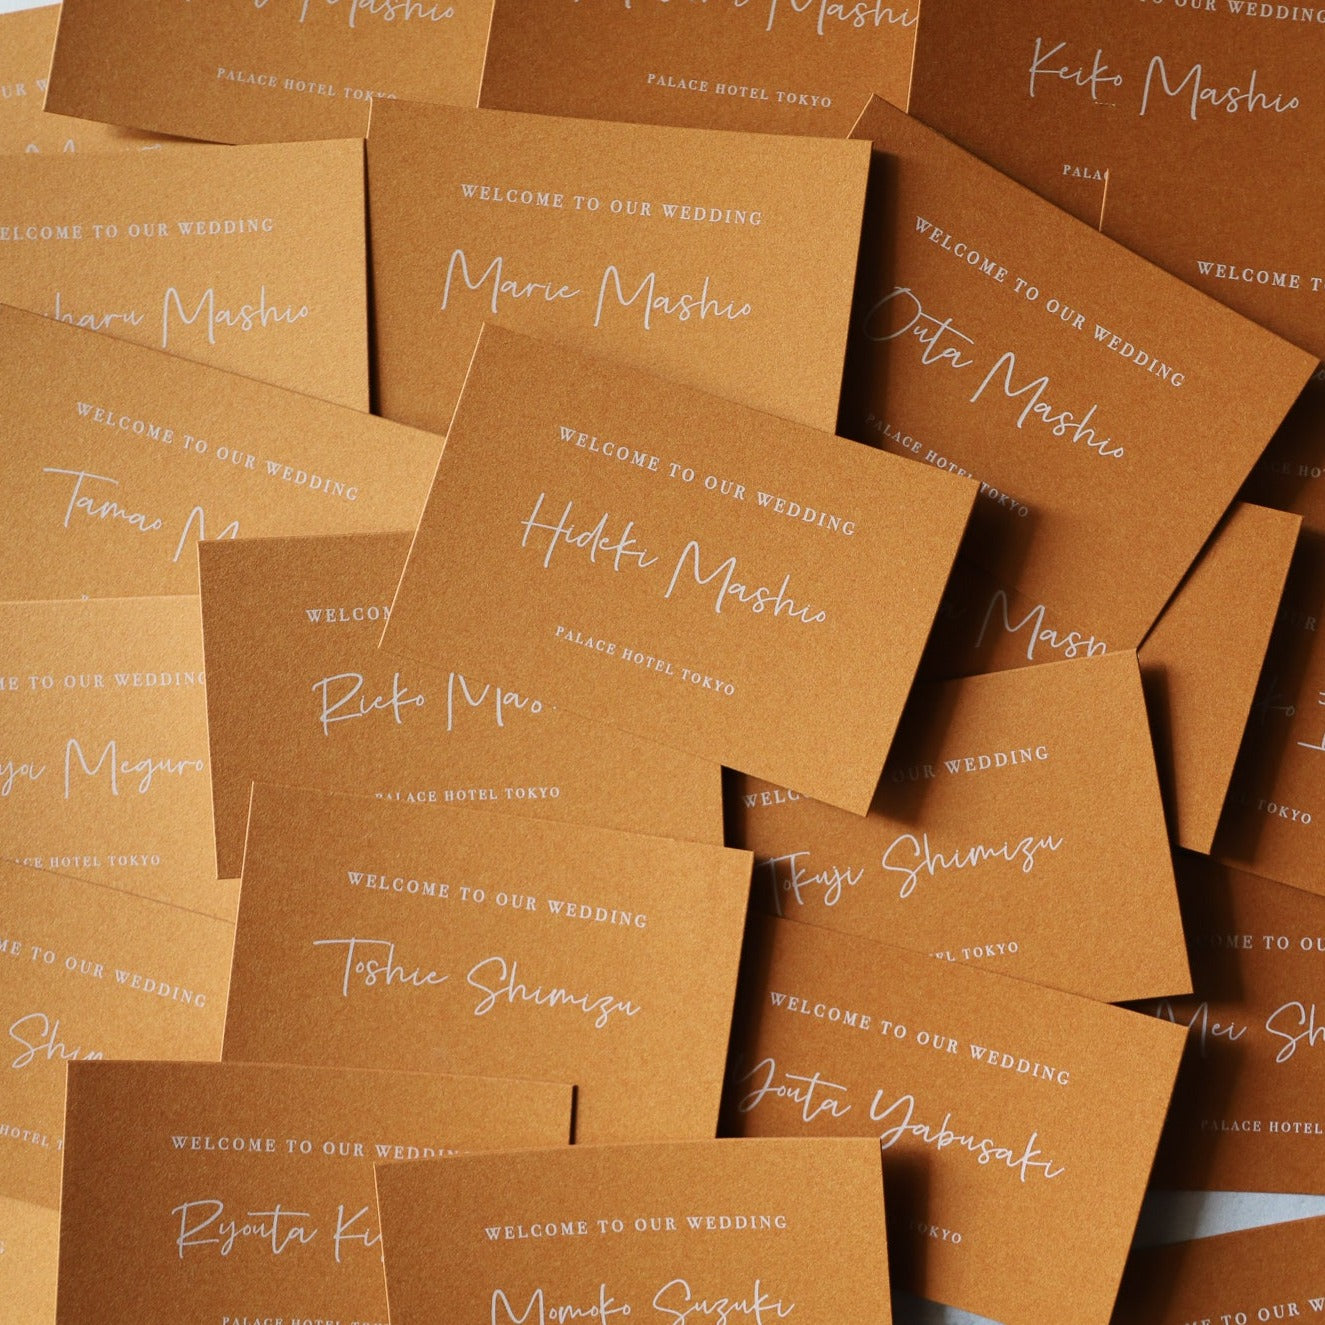 Mashio
PALACE HOTEL TOKYO
Mashi
PALACE HOTEL TOKYO
TO OUR WEDDING
Keiko Mashio
WELCOME TO OUR WEDDING
Marie Mashio
ELCOME TO OUR WEDDING
iharu Mashio
WELCOME TO OUR WEDDING
Outa Mashio
PALACE HOTEL TOKYO
WELCOME T
WELCOME TO OUR WEDDING
Tamao M
WELCOME TO OUR WEDDING
Hideki Mashio
PALACE HOTEL TOKYO
WELCOM
Rieko Mao
PALACE HOTEL TOKYO
ME TO OUR WEDDING
yoi Meguro
ACE HOTEL TOKYO
WELC OUR WEDDING
Tokuji Shimizu
EL TOKYO
WELCOME TO OUR WEDDING
Toshie Shimizu
ME TO OUR WEDDING
Shim
HOTEL T
WELCOME TO OUR WEDDING
Youta Yabusaki
TOKYO
COME TO OU
Mei Sh
PALACE HOTEL
WELCOME TO OUR WEDDIN
Ryouta Ki
PALACE HOTEL TO
WELCOME TO OUR WEDDING
Momoko Suzuki
E TO OUR W